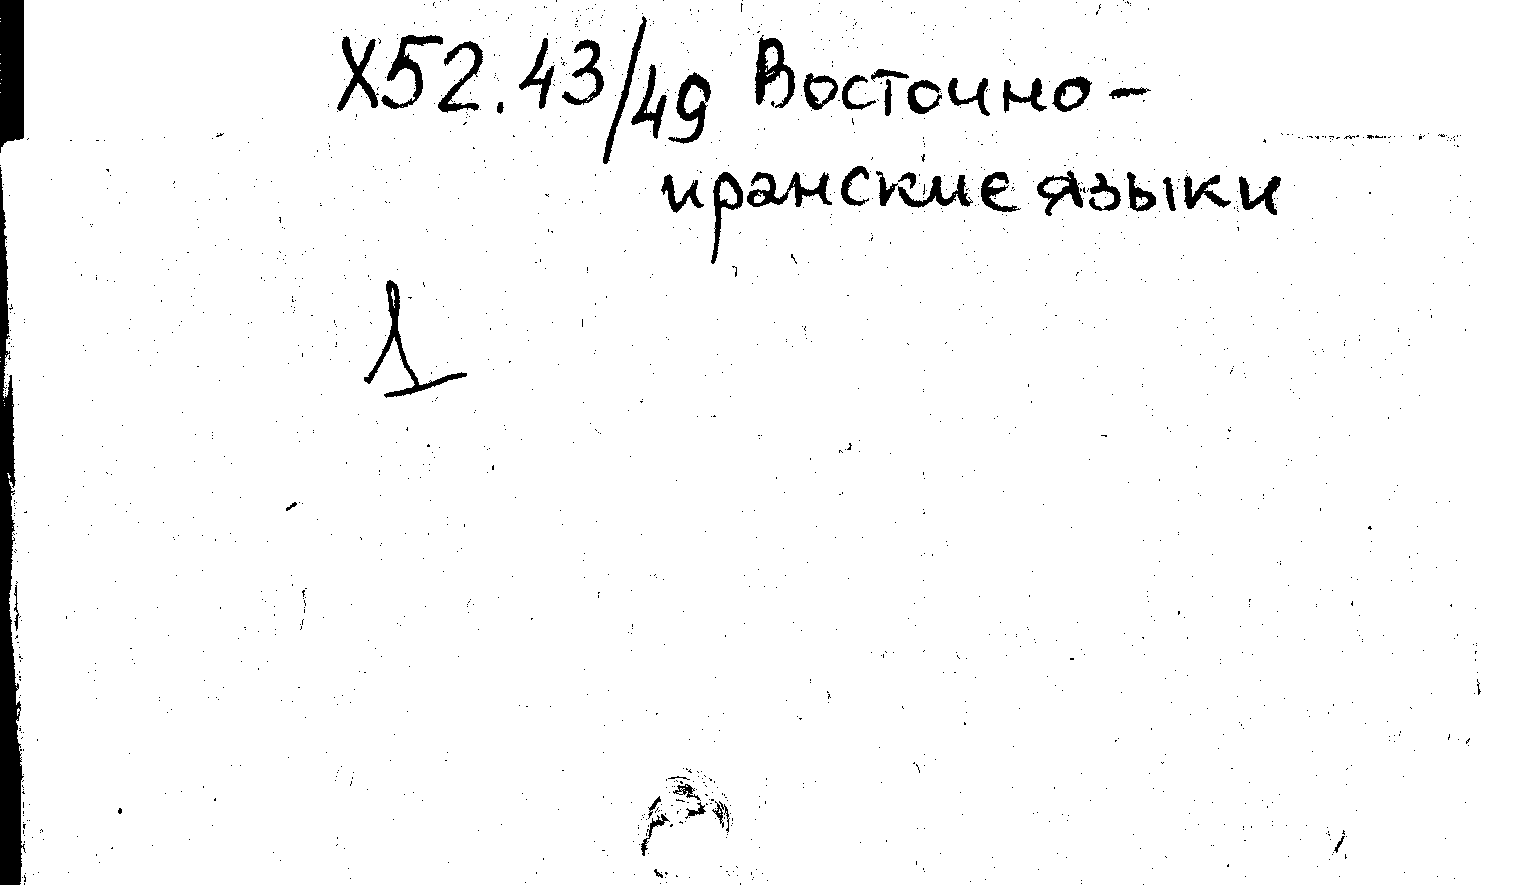 Х52.43/49 Восточно-
иранские языки